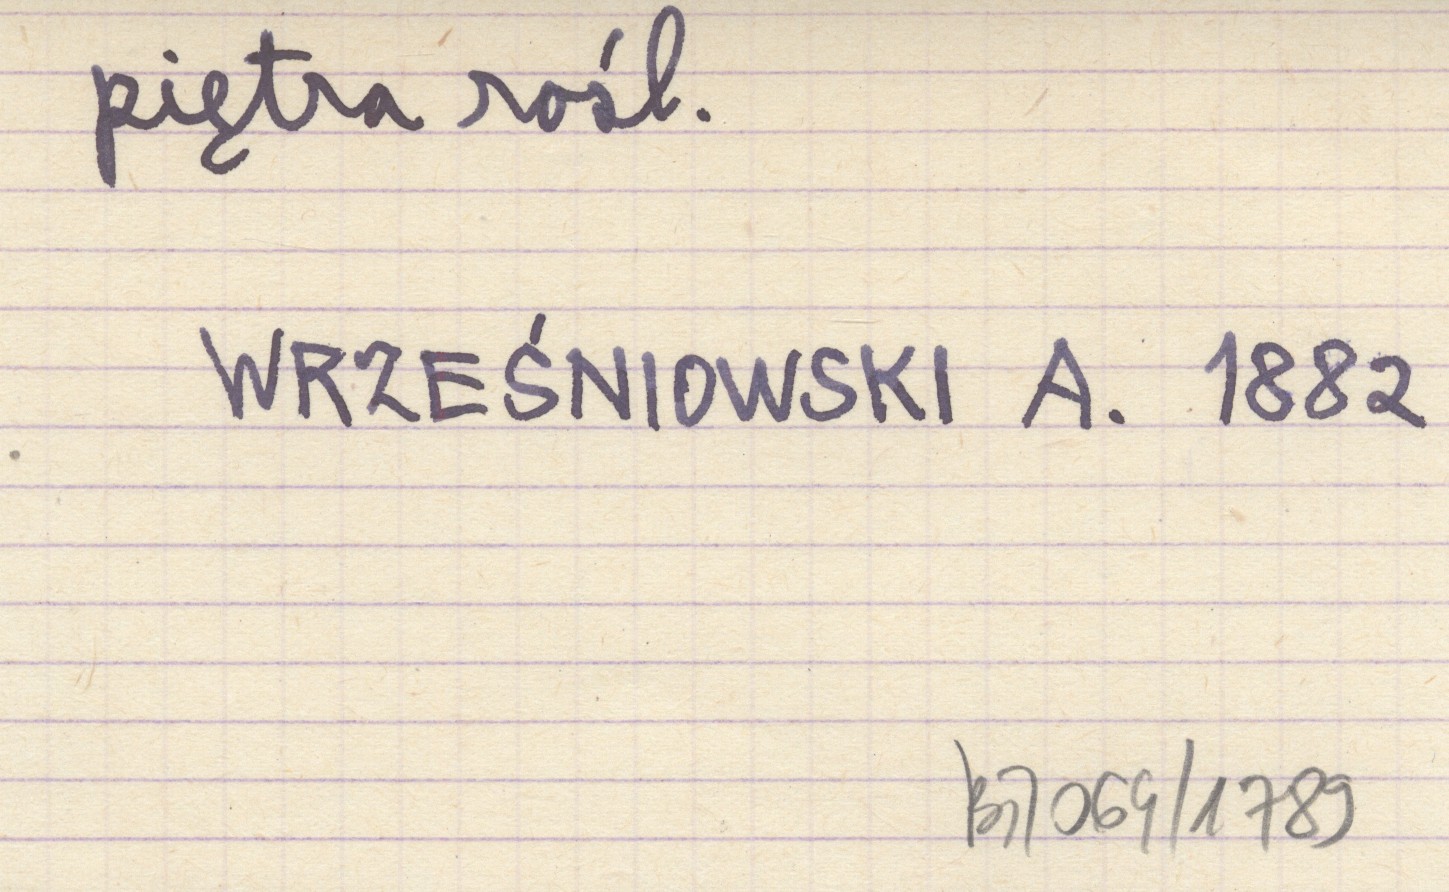 piętra rośl.
WRZEŚNIOWSKI A. 1882
069/1789